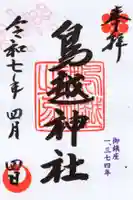 奉拝
御鎮座
一、三七四年
鳥越神社
令和七年四月四日